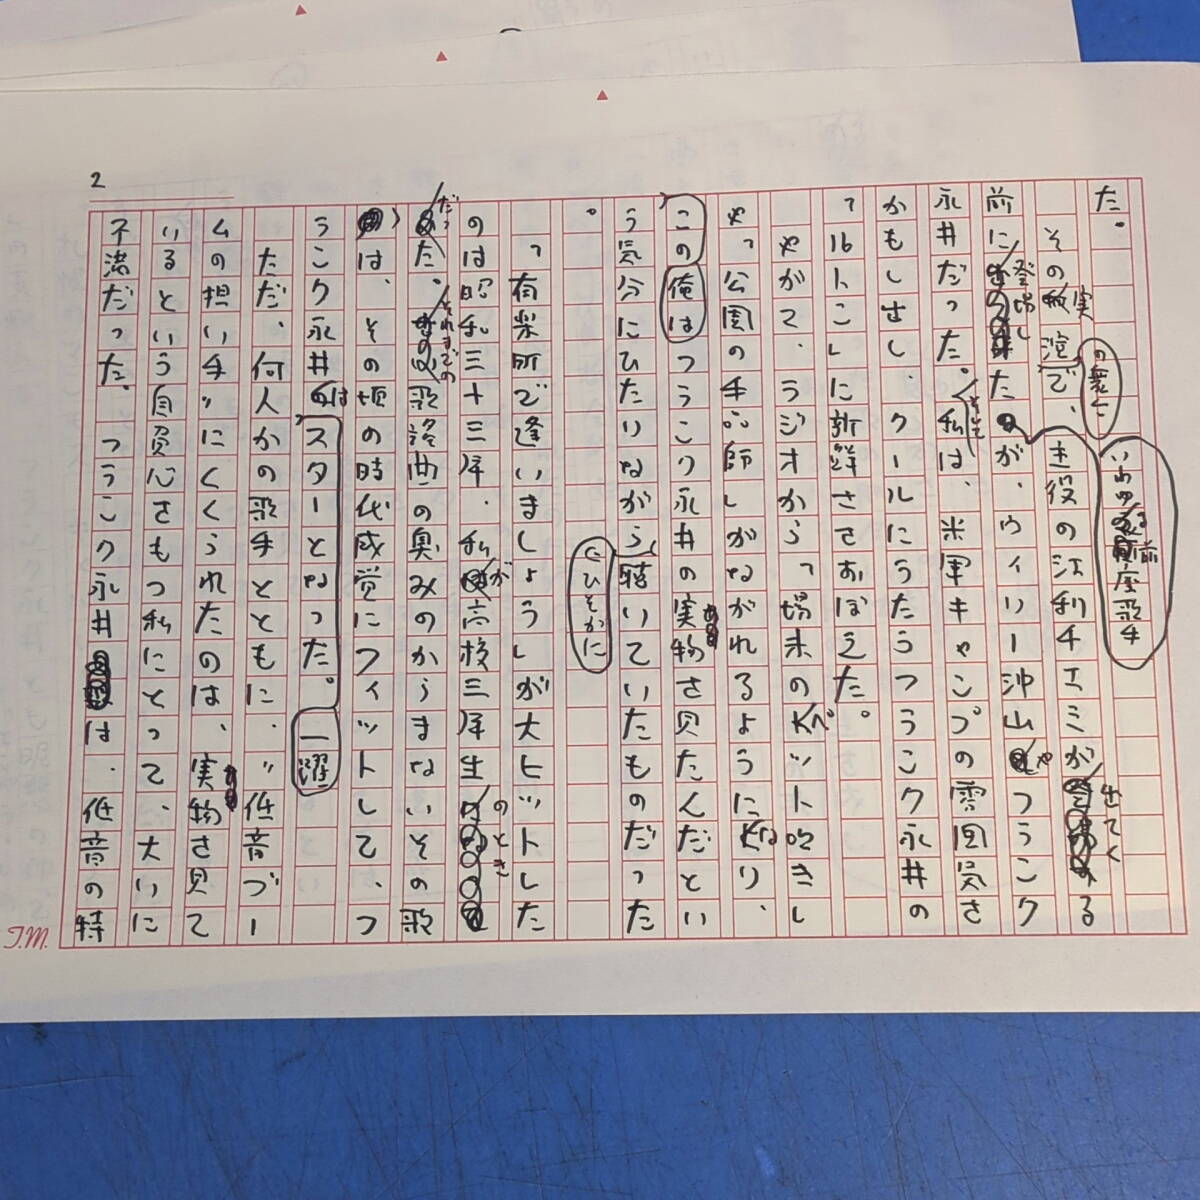 2
た。
その実演の舞台で、主役の江利チエミが出てくる
いわゆる前座歌手
前に登場したが、ウィリー沖山やフランク
永井だった。そして私は、米軍キャンプの雰囲気を
かもし出し、クールにうたうフランク永井の
「16トン」に新鮮さをおぼえた。
やがて、ラジオから「場末のペット吹き」
や「公園の手品師」がながれるようになり、
この俺はフランク永井の実物を見たんだとい
う気分にひたりながら聴いていたものだった
。
にひそかに
「有楽町で逢いましょう」が大ヒットした
のは昭和三十三年、私が高校三年生のとき
だった。それまでの歌謡曲の臭みのからまないその歌
は、その頃の時代感覚にフィットして、フ
ランク永井は一躍スターとなった。
ただ、何人かの歌手とともに、〝低音ブー
ムの担い手〟にくくられたのは、実物を見て
いるという自負心をもつ私にとって、大いに
不満だった。フランク永井は、低音の特
T.M.